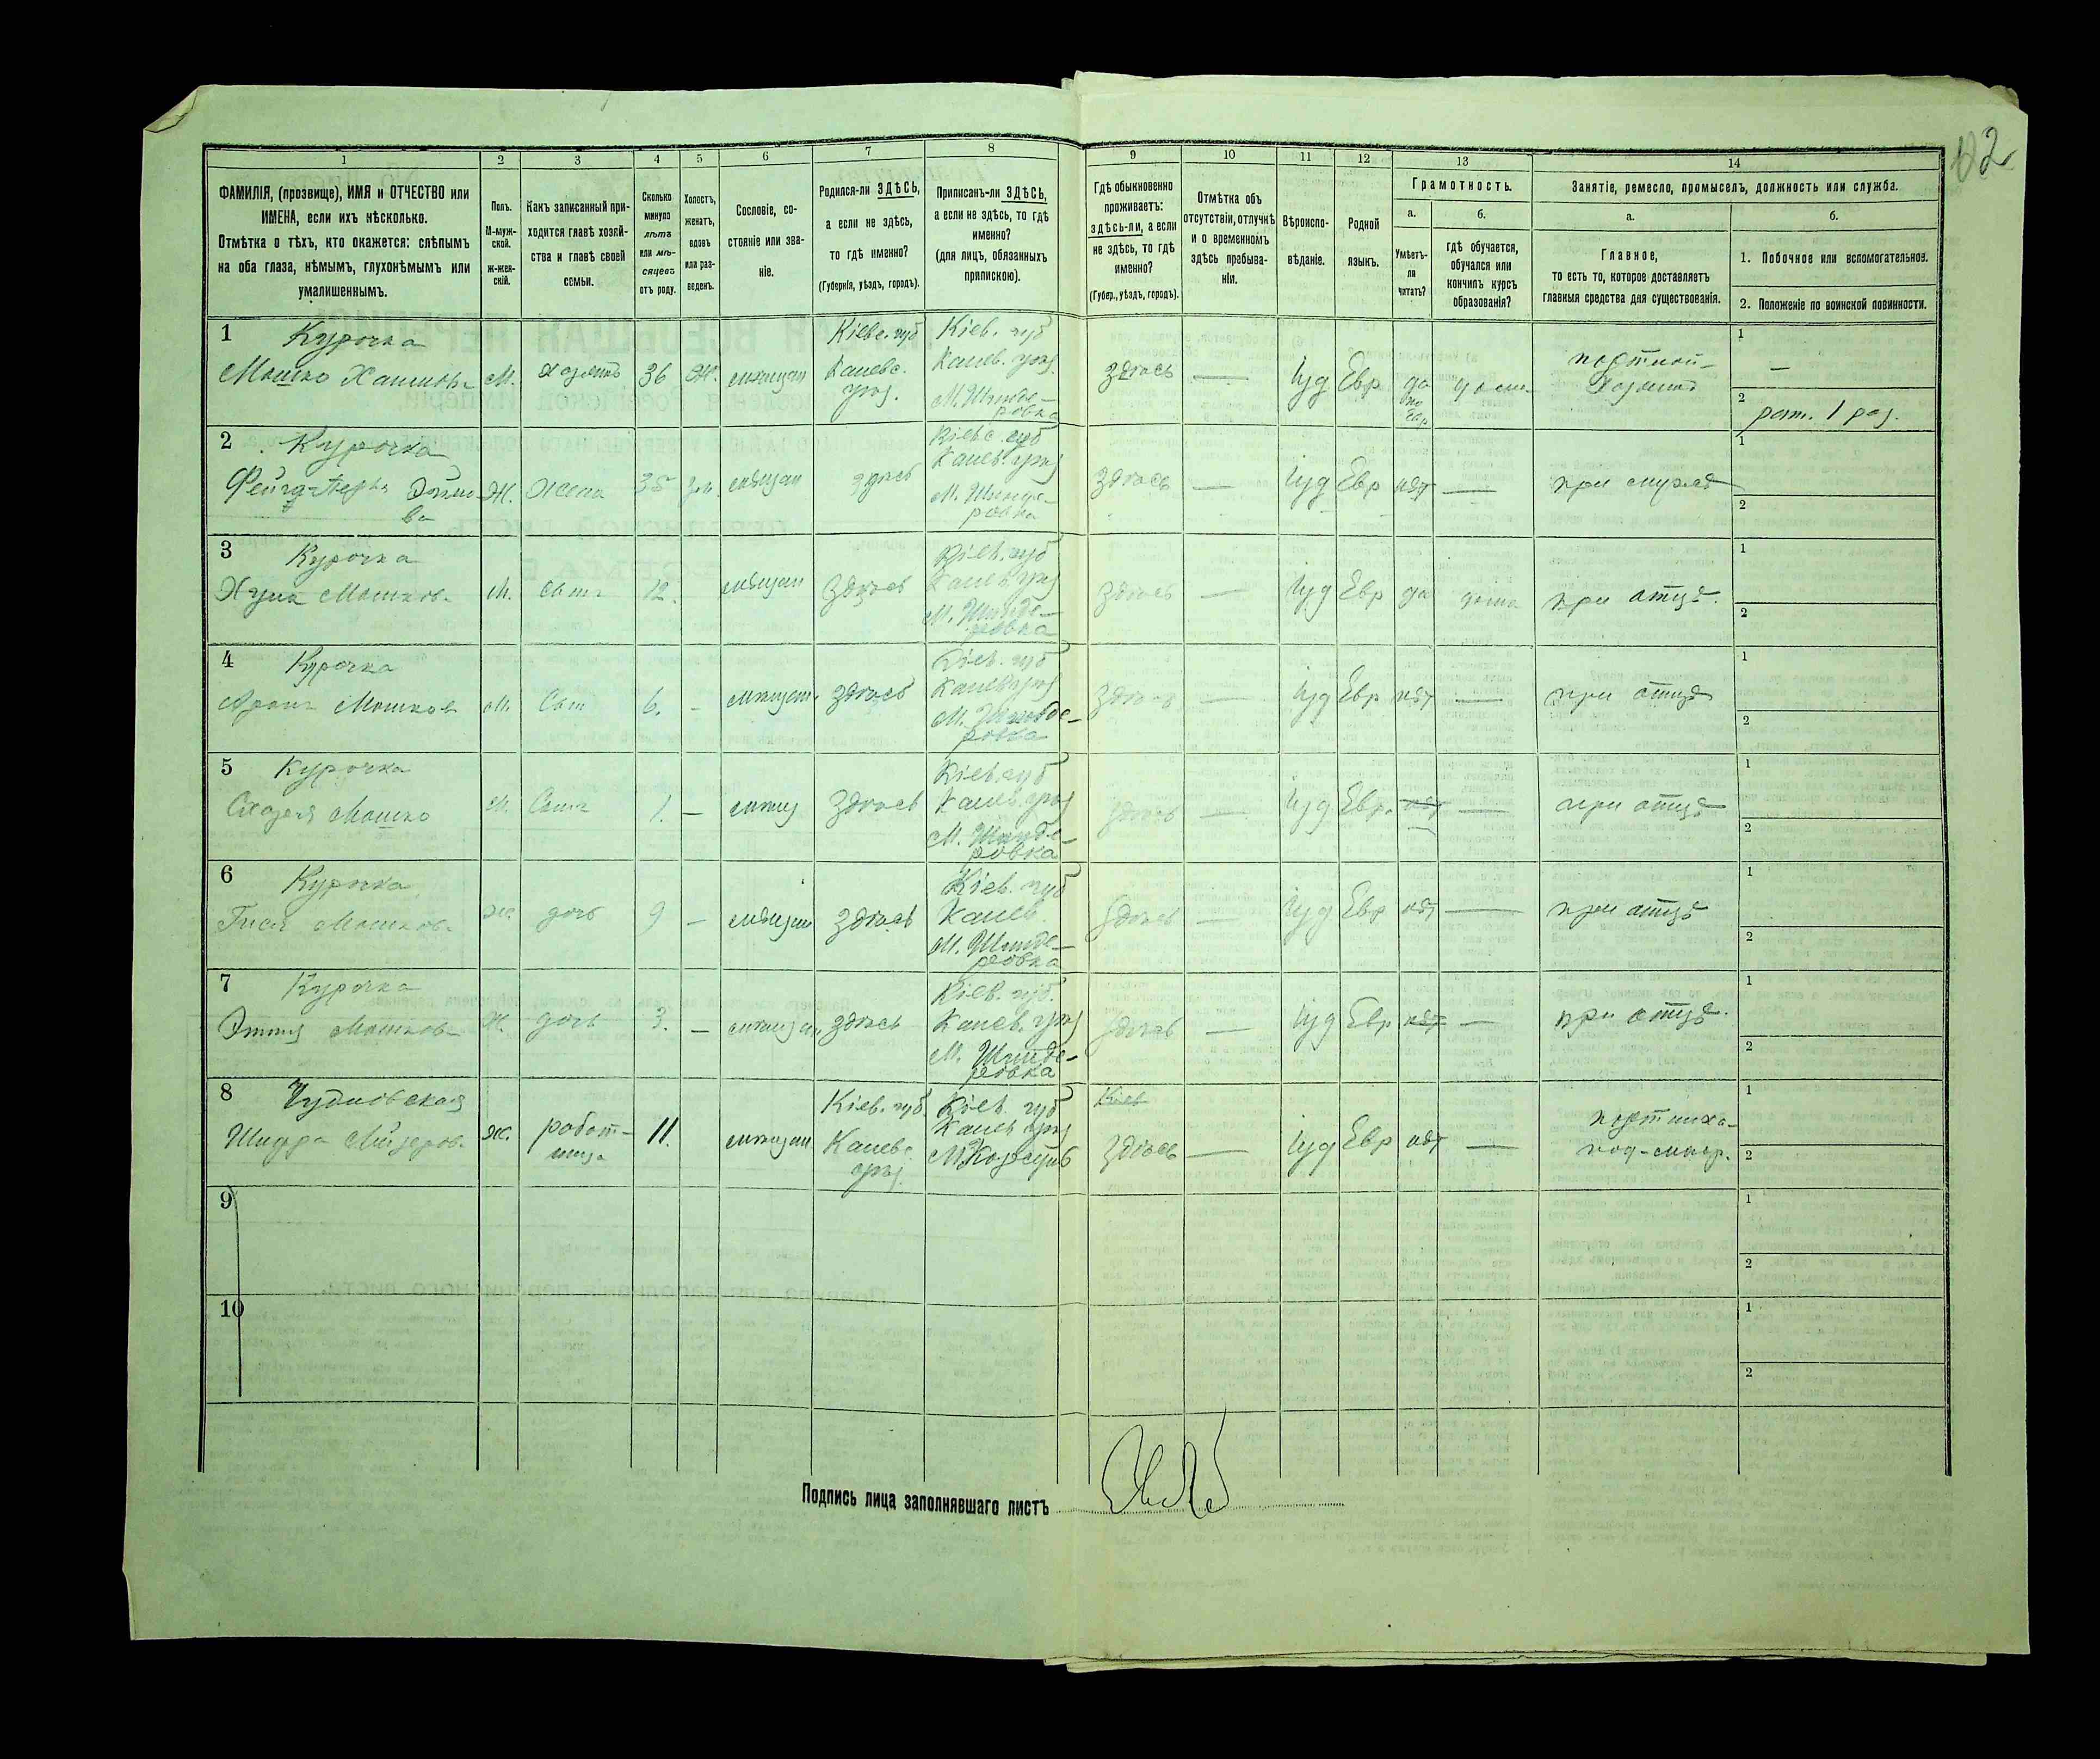 1 2 3 4 5 6 7 8 9 10 11 12 13 14
ФАМИЛІЯ, (прозвище), ИМЯ и ОТЧЕСТВО или
ИМЕНА, если ихъ нѣсколько.
Отмѣтка о тѣхъ, кто окажется: слѣпымъ
на оба глаза, нѣмымъ, глухонѣмымъ или
умалишеннымъ.
Полъ.
М-муж-
ской.
Ж-жен-
скій.
Какъ записанный при-
ходится главѣ хозяй-
ства и главѣ своей
семьи.
Сколько
минуло
лѣтъ
или мѣ-
сяцевъ
отъ роду.
Холостъ,
женатъ,
вдовъ
или раз-
веденъ.
Сословіе, со-
стояніе или зва-
ніе.
Родился-ли ЗДѢСЬ,
а если не здѣсь,
то гдѣ именно?
(Губернія, уѣздъ, городъ).
Приписанъ-ли ЗДѢСЬ,
а если не здѣсь, то гдѣ
именно?
(для лицъ, обязанныхъ
припискою).
Гдѣ обыкновенно
проживаетъ:
здѣсь-ли, а если
не здѣсь, то гдѣ
именно?
(Губер., уѣздъ, городъ).
Отмѣтка объ
отсутствіи, отлучкѣ
и о временномъ
здѣсь пребыва-
ніи.
Вѣроиспо-
вѣданіе.
Родной
языкъ.
Грамотность.
а.
Умѣетъ-
ли
читать?
б.
гдѣ обучается,
обучался или
кончилъ курсъ
образованія?
Занятіе, ремесло, промыселъ, должность или служба.
а.
Главное,
то есть то, которое доставляетъ
главныя средства для существованія.
б.
1. Побочное или вспомогательное.
2. Положеніе по воинской повинности.
1 Курочка
Мошко М. хозяинъ 36 Ж. мѣщан
Кіевс. губ
Каневс.
уѣз.
Кіев. губ
Канев. уѣз.
М. Шанде-
ровка
здѣсь — Іуд Евр да
по
Евр
дома
портной-
хозяинъ
1 —
2 рат. 1 раз.
2 Курочка
Ж. Жена 35 мѣщан здѣсь
Кіевс. губ
Канев. уѣз
М. Шанде-
ровка
здѣсь — Іуд Евр нѣт — при мужѣ
1
2
3 Курочка
Мошков. М. сынъ 12. мѣщан здѣсь
Кіев. губ
Канев. уѣз
М. Шанде-
ровка
здѣсь — Іуд Евр да дома при отцѣ.
1
2
4 Курочка
Мошков М. Сын 6. - мѣщан. здѣсь
Кіев. губ
Канев уѣз
М. Шанде-
ровка
здѣсь — Іуд Евр нѣт — при отцѣ
1
2
5 Курочка
Мошко М. Сынъ 1. — мѣщ здѣсь
Кіев. губ
Канев. уѣз
М. Шанде-
ровка
здѣсь — Іуд Евр. нѣт — при отцѣ
1
2
6 Курочка
Гися Мошков. Ж. дочь 9 — мѣщан здѣсь
Кіев. губ
Канев.
М. Шанде-
ровка
здѣсь — Іуд Евр нѣт — при отцѣ
1
2
7 Курочка
Мошков. Ж. дочь 3. — мѣщан. здѣсь
Кіев. губ.
Канев. уѣз
М. Шанде-
ровка
здѣсь — Іуд Евр нѣт — при отцѣ.
1
2
8 Чудновская
Шифра Ж. работ-
ница
11. мѣщан
Кіев. губ
Каневс.
уѣз.
Кіев. губ
Канев уѣз
М. Корсунь
Кіев
здѣсь — Іуд Евр нѣт —
портниха-
под-мастер.
1
2
9
1
2
10
1
2
Подпись лица заполнявшаго листъ